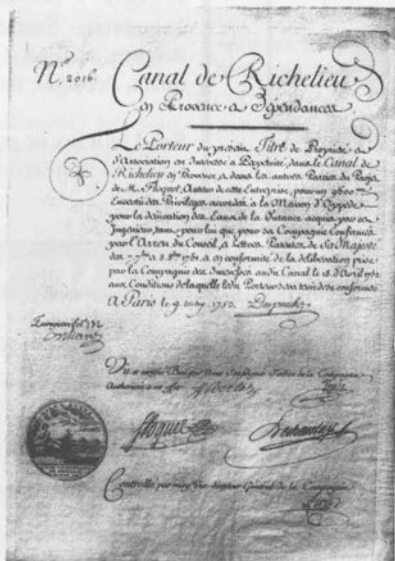 N.º 2016.
Canal de Richelieu
en Provence et Dépendances
Le Porteur du présent Titre de Propriété et
d'Association est Intéressé à Perpetuité, dans le Canal de
Richelieu en Provence, et dans les autres Parties du Projet
de M. Floquet, Auteur de cette Entreprise, pour un 9600.me
Ensuite des Privileges accordés à la Maison d'Oppede
pour la dérivation des Eaux de la Durance acquis par cet
Ingénieur, tant pour lui que pour sa Compagnie Confirmés
par l'Arrest du Conseil, et Lettres Patentes de Sa Majesté
des 7.bre et 8.bre 1751, et en conformité de la déliberation prise
par la Compagnie des Interessés audit Canal le 18. d'Avril 1752
aux Conditions de laquelle ledit Porteur sera tenu de se conformer
A Paris le 9 may 1753.
Vû et certifié Bon par Nous Syndics de la Compagnie
Authorisés
Floquet
Controllé par moy Directeur Général de la Compagnie